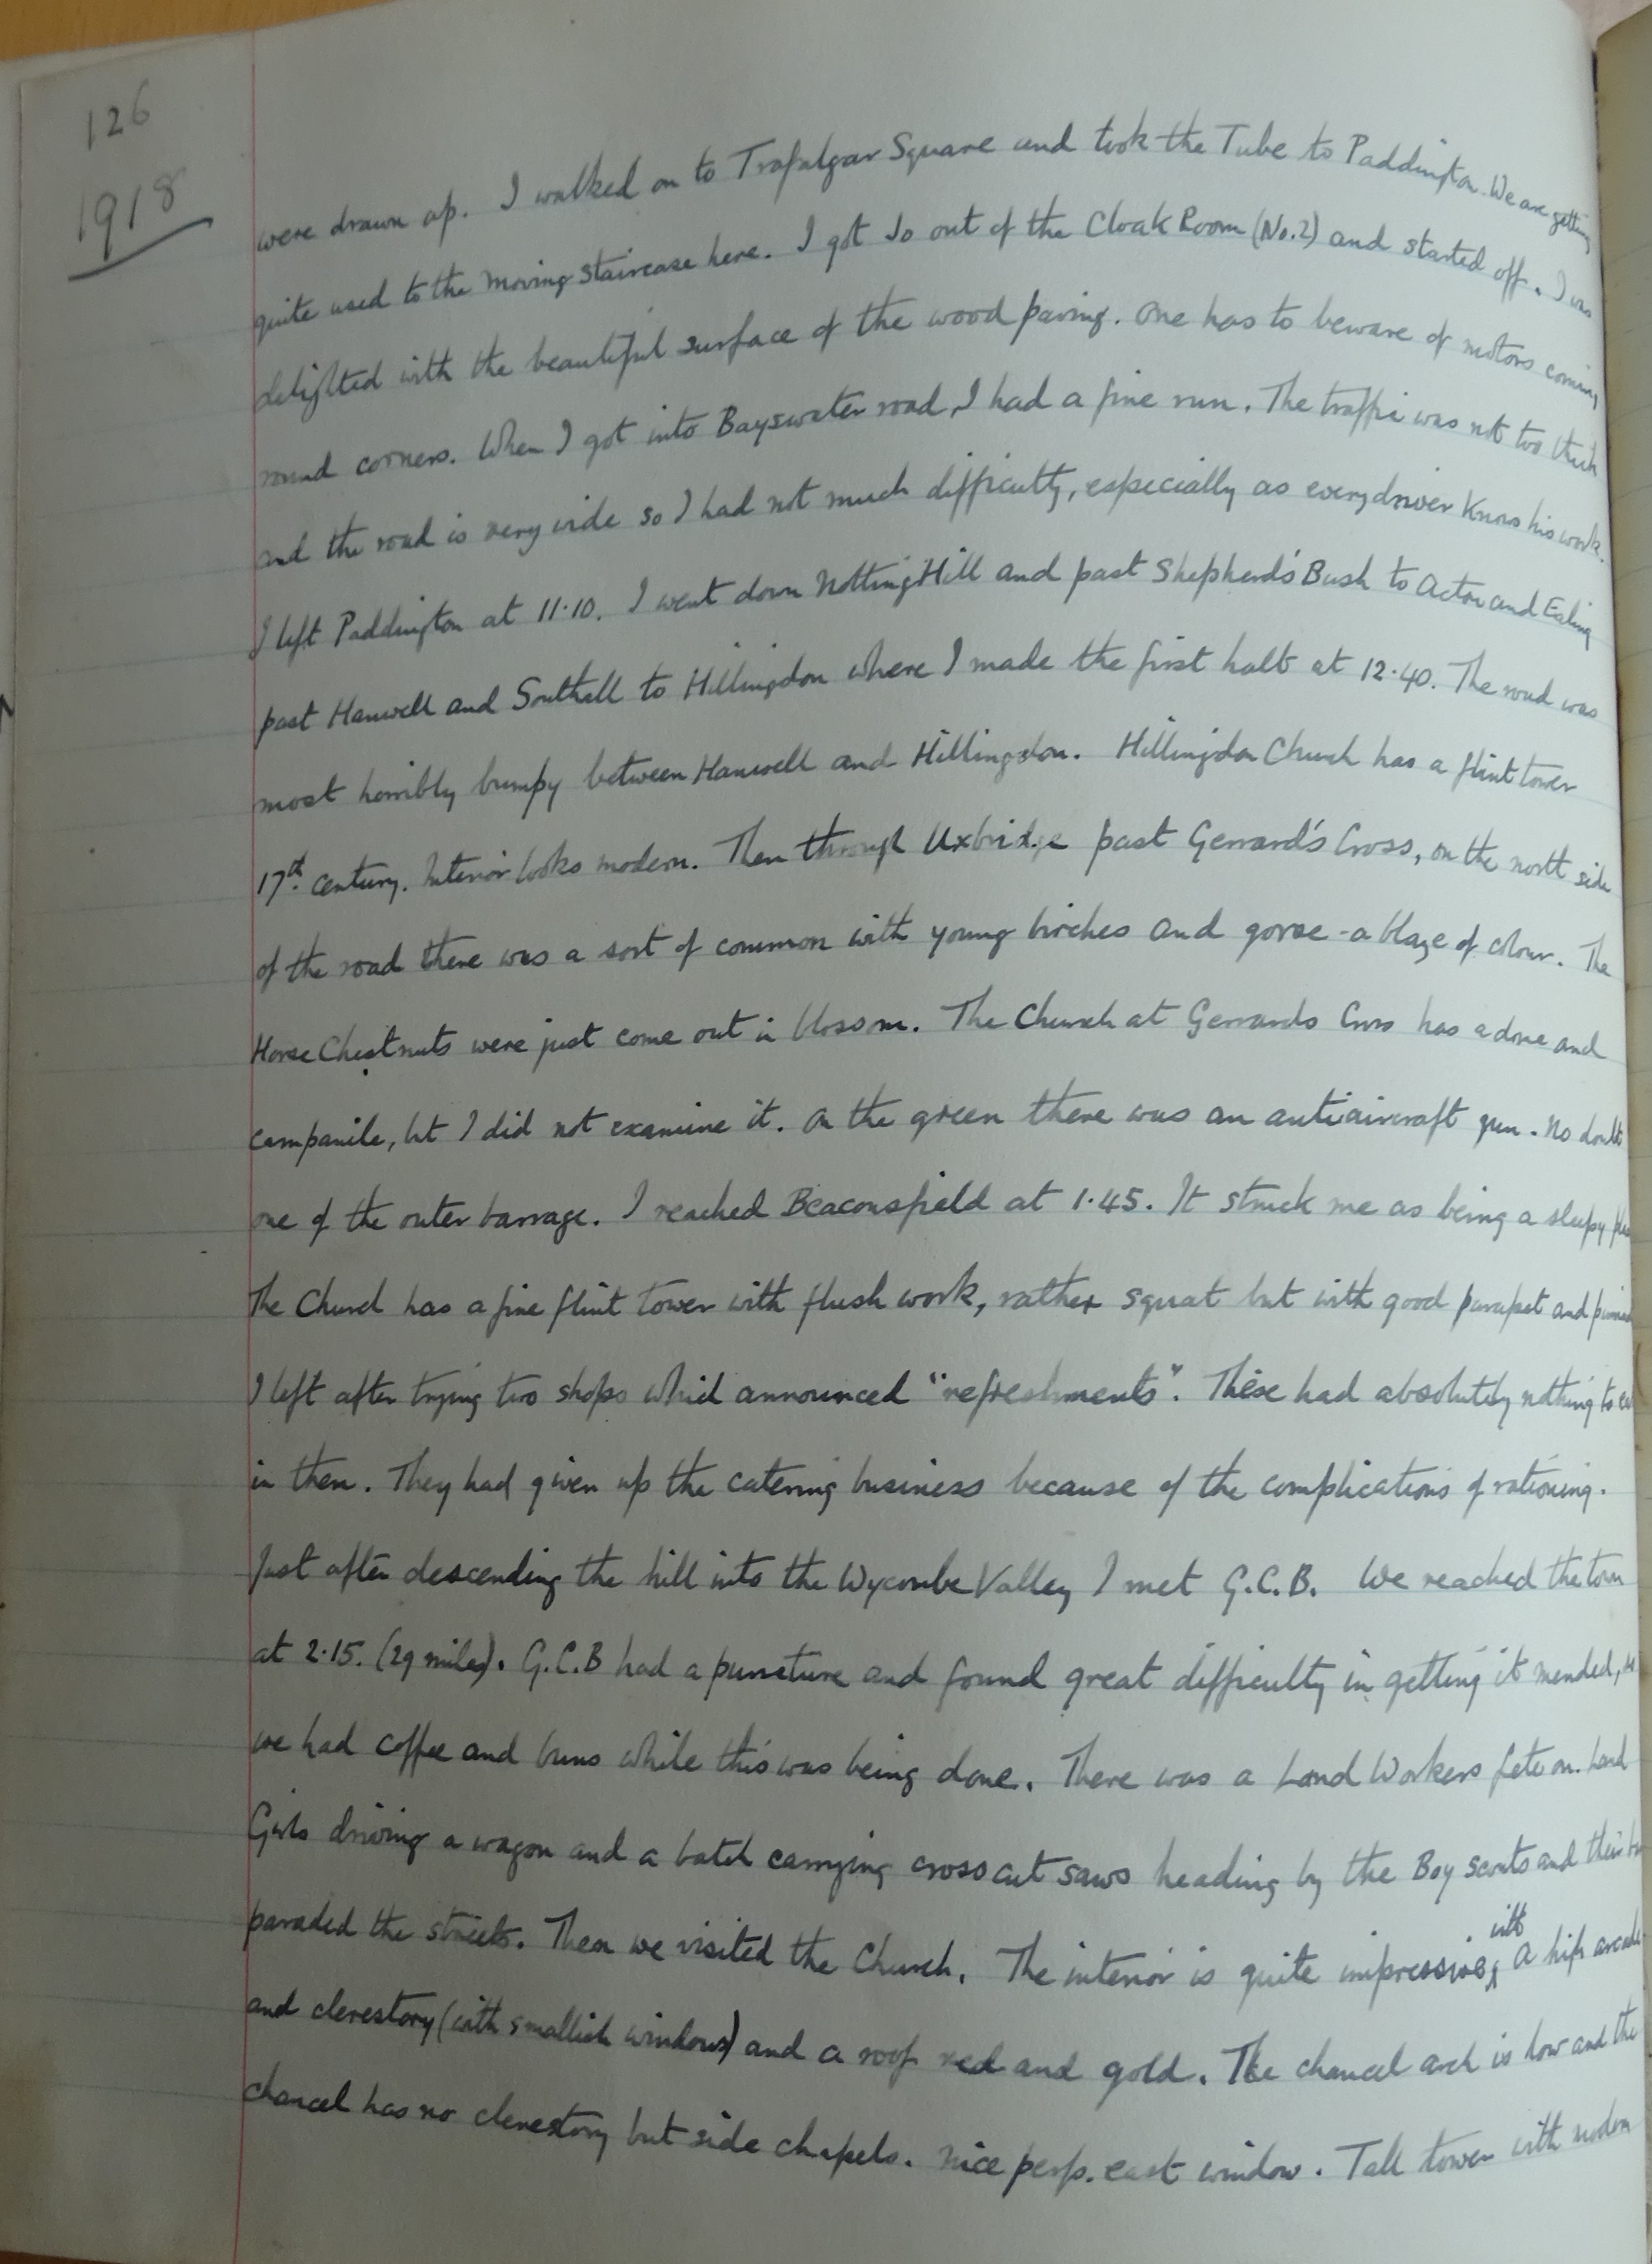 126
1918
were drawn up. I walked on to Trafalgar Square and took the Tube to Paddington. We are getting
quite used to the moving staircase here. I got Jo out of the Cloak Room (No.2) and started off. I was
delighted with the beautiful surface of the wood paving. One has to beware of motors coming
round corners. When I got into Bayswater road, I had a fine run. The traffic was not too thick
and the road is very wide so I had not much difficulty, especially as every driver knows his work.
I left Paddington at 11.10. I went down Notting Hill and past Shepherd's Bush to Acton and Ealing
past Hanwell and Southall to Hillingdon where I made the first halt at 12.40. The road was
most horribly bumpy between Hanwell and Hillingdon. Hillingdon Church has a flint tower
17th century. Interior looks modern. Then through Uxbridge past Gerrard's Cross, on the north side
of the road there was a sort of common with young birches and gorse - a blaze of colour. The
Horse Chestnuts were just come out in blossom. The Church at Gerrards Cross has a dome and
campanile, but I did not examine it. On the green there was an antiaircraft gun. No doubt
one of the outer barrage. I reached Beaconsfield at 1.45. It struck me as being a sleepy
The Church has a fine flint tower with flush work, rather squat but with good parapet and
I left after trying two shops which announced "refreshments". These had absolutely nothing to
in them. They had given up the catering business because of the complications of rationing.
Just after descending the hill into the Wycombe Valley I met G.C.B. We reached the town
at 2.15. (29 miles). G.C.B had a puncture and found great difficulty in getting it mended,
we had coffee and buns while this was being done. There was a Land Workers fete on. Land
Girls driving a wagon and a batch carrying cross cut saws heading by the Boy scouts and their
paraded the streets. Then we visited the Church. The interior is quite impressive, with a high arcade
and clerestory (with smallish windows) and a roof red and gold. The chancel arch is low and the
chancel has no clerestory but side chapels. Nice perp. east window. Tall tower with modern